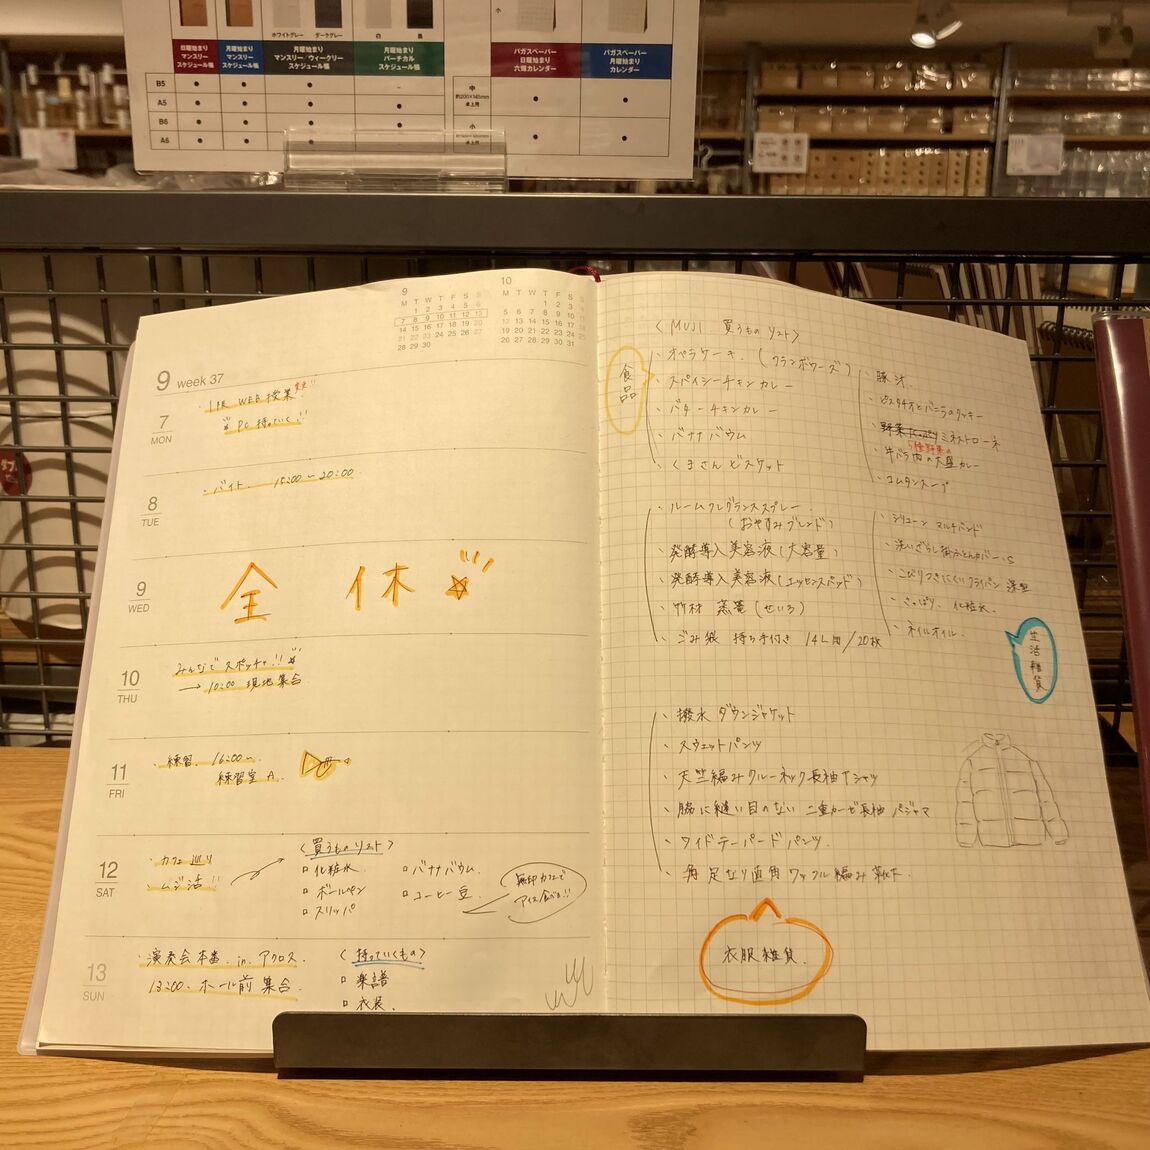 ホワイトグレー ダークグレー 白 黒 小
日曜始まり マンスリー スケジュール帳
月曜始まり マンスリー スケジュール帳
月曜始まり マンスリー/ウィークリー スケジュール帳
月曜始まり バーチカル スケジュール帳
バガスペーパー 日曜始まり 六輝カレンダー
バガスペーパー 月曜始まり カレンダー
B5 ● ● ● -
A5 ● ● ● ●
B6 ● ● ● ●
A6 ● ● ● ●
中 約200×145mm 卓上用 ● ●
小 卓上用 ● ●
9
M T W T F S S
1 2 3 4 5 6
7 8 9 10 11 12 13
14 15 16 17 18 19 20
21 22 23 24 25 26 27
28 29 30
10
M T W T F S S
1 2 3 4
5 6 7 8 9 10 11
12 13 14 15 16 17 18
19 20 21 22 23 24 25
26 27 28 29 30 31
9 week 37
7 MON
・1限 WEB授業 変更!!
PC持っていく!!
8 TUE
・バイト 15:00〜20:00
9 WED
全休
10 THU
みんなでスポッチャ!!
→10:00 現地集合
11 FRI
・練習 16:00〜
練習室A
12 SAT
・カフェ巡り
・ムジ活!!
〈買うものリスト〉
□化粧水
□ボールペン
□スリッパ
□バナナバウム
□コーヒー豆
無印カフェで
アイス食べる!!
13 SUN
・演奏会本番 in アクロス
13:00 ホール前集合
〈持っていくもの〉
□楽譜
□衣装
〈MUJI 買うものリスト〉
食品
・オペラケーキ (フランボワーズ)
・スパイシーチキンカレー
・バターチキンカレー
・バナナバウム
・くまさんビスケット
・豚汁
・ピスタチオとバニラのクッキー
・野菜たっぷりミネストローネ
5種野菜の
・牛バラ肉の大盛カレー
・コムタンスープ
・ルームフレグランススプレー
(おやすみブレンド)
・発酵導入美容液(大容量)
・発酵導入美容液(エッセンスパッド)
・竹材 蒸篭(せいろ)
・ごみ袋 持ち手付き 14L用/20枚
・シリコーン マルチバンド
・洗いざらし掛ふとんカバー・S
・こびりつきにくいフライパン 深型
・さっぱり 化粧水
・ネイルオイル
生活雑貨
・撥水ダウンジャケット
・スウェットパンツ
・天竺編みクルーネック長袖Tシャツ
・脇に縫い目のない 二重ガーゼ長袖パジャマ
・ワイドテーパードパンツ
・足なり直角 ワッフル編み 靴下
衣服雑貨